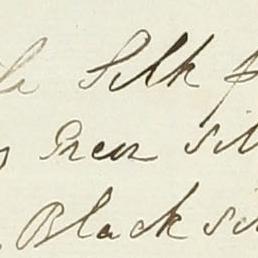 Silk
Green sil
Black si